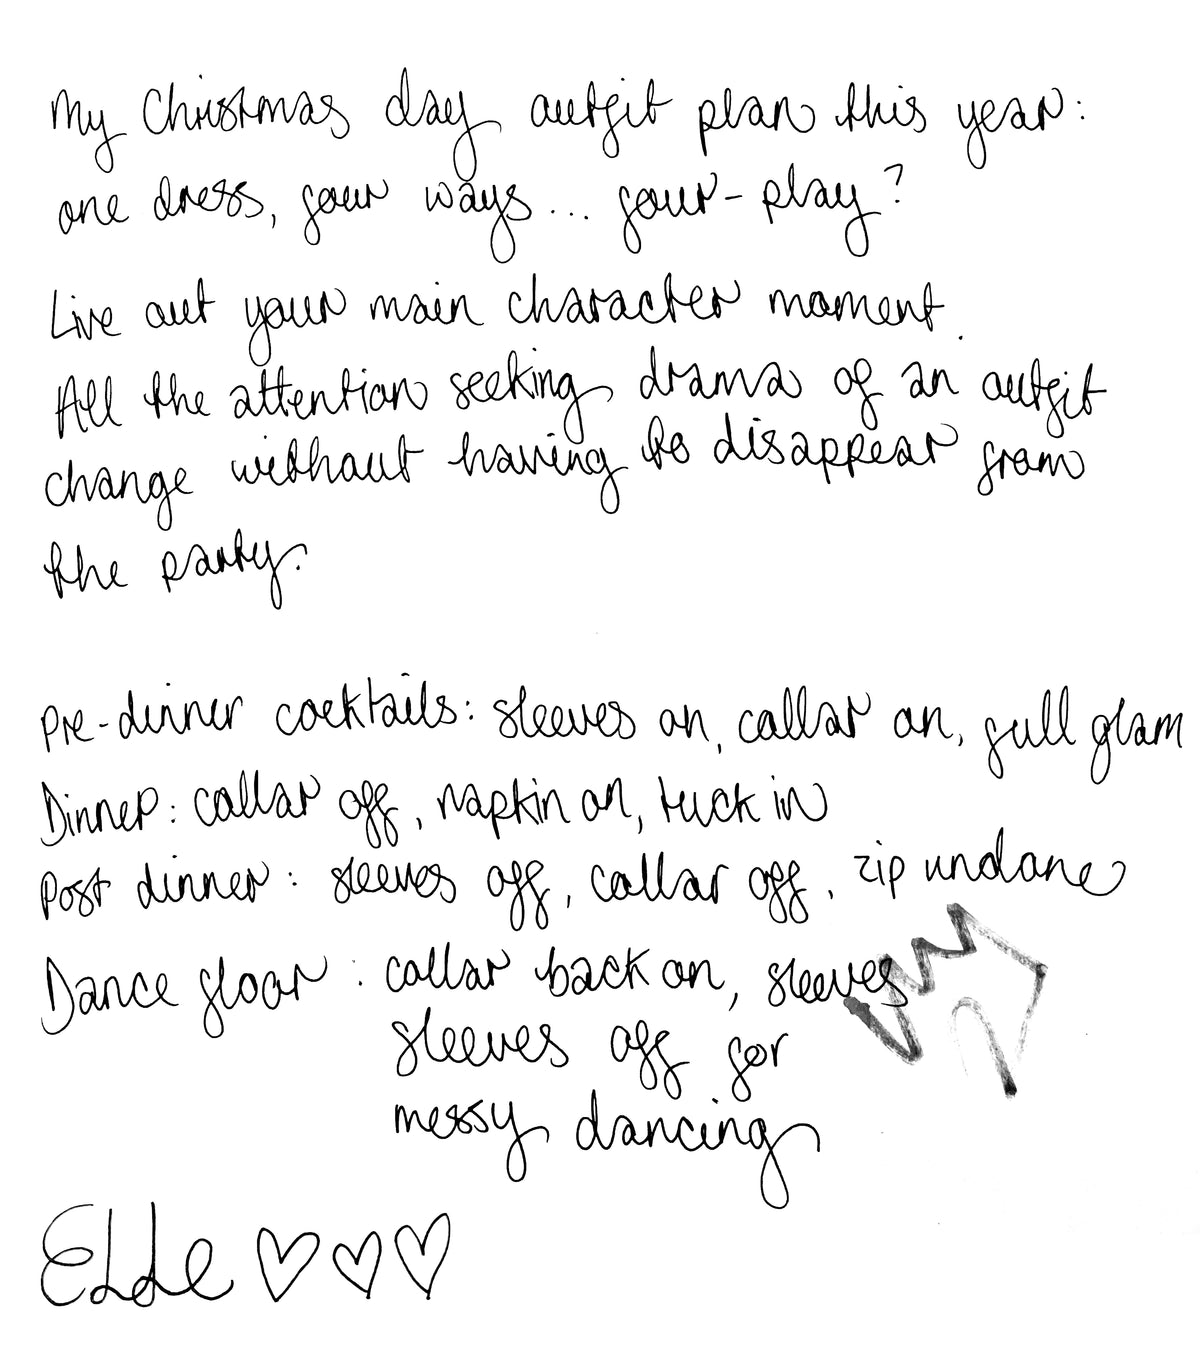 My Christmas day outfit plan this year:
one dress, four ways... four-play?
Live out your main character moment.
All the attention seeking drama of an outfit
change without having to disappear from
the party.
Pre-dinner cocktails: sleeves on, collar on, full glam
Dinner: collar off, napkin on, tuck in
Post dinner: sleeves off, collar off, zip undone
Dance floor: collar back on, sleeves
sleeves off for
messy dancing
Elle ♡♡♡